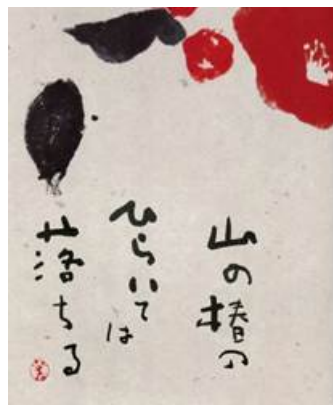 山の椿の
ひらいては
落ちる